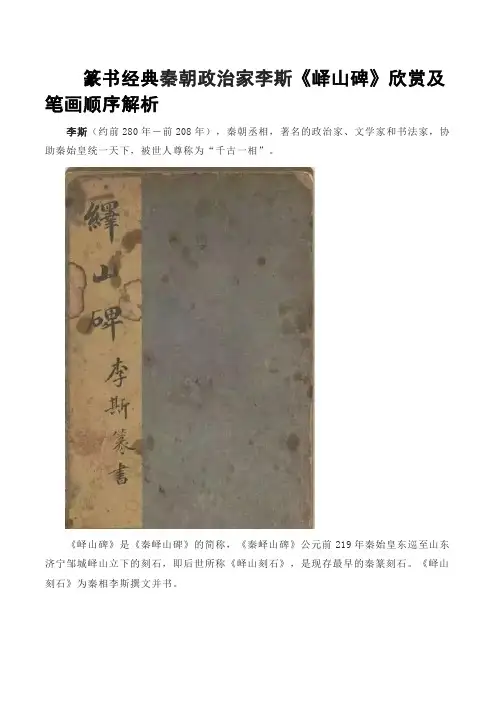 篆书经典秦朝政治家李斯《峄山碑》欣赏及
笔画顺序解析
李斯（约前280年－前208年），秦朝丞相，著名的政治家、文学家和书法家，协
助秦始皇统一天下，被世人尊称为“千古一相”。
繹山碑李斯篆書
《峄山碑》是《秦峄山碑》的简称，《秦峄山碑》公元前219年秦始皇东巡至山东
济宁邹城峄山立下的刻石，即后世所称《峄山刻石》，是现存最早的秦篆刻石。《峄山
刻石》为秦相李斯撰文并书。